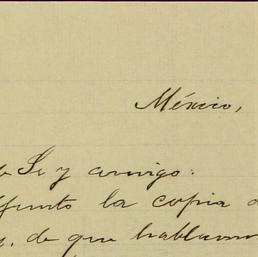 México,
Sr y amigo:
la copia
de que hablamo